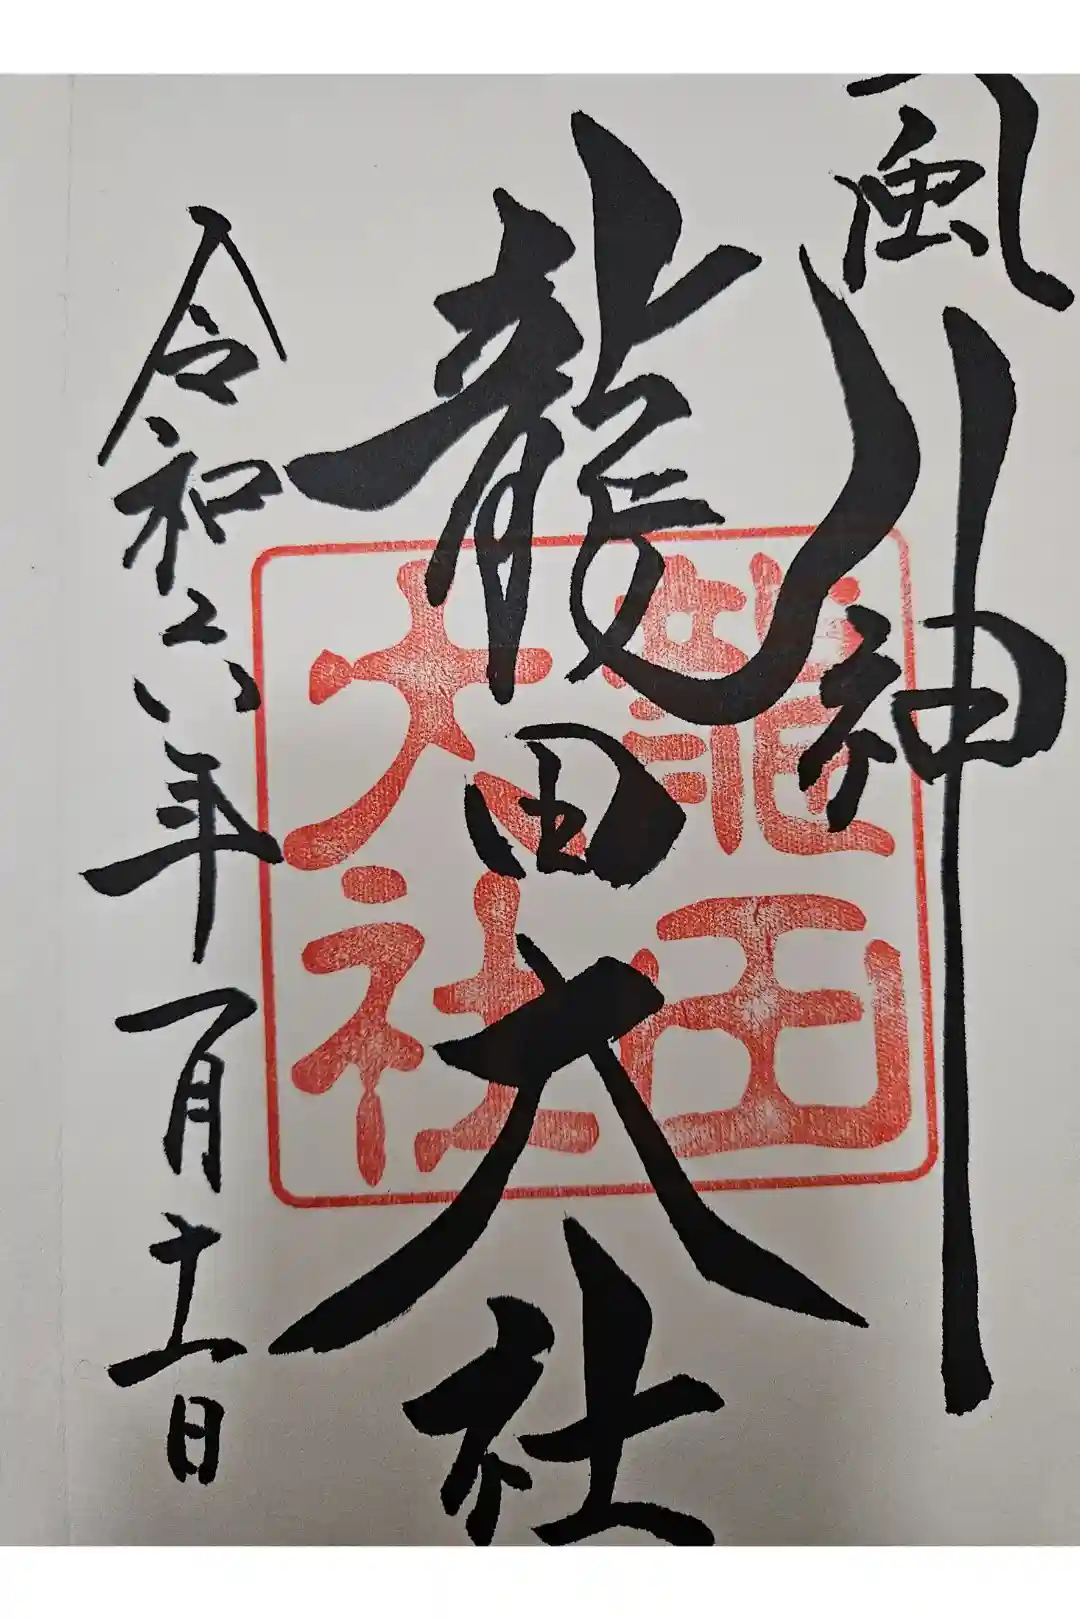 風神
龍田大社
令和六年一月十一日
龍田
大社